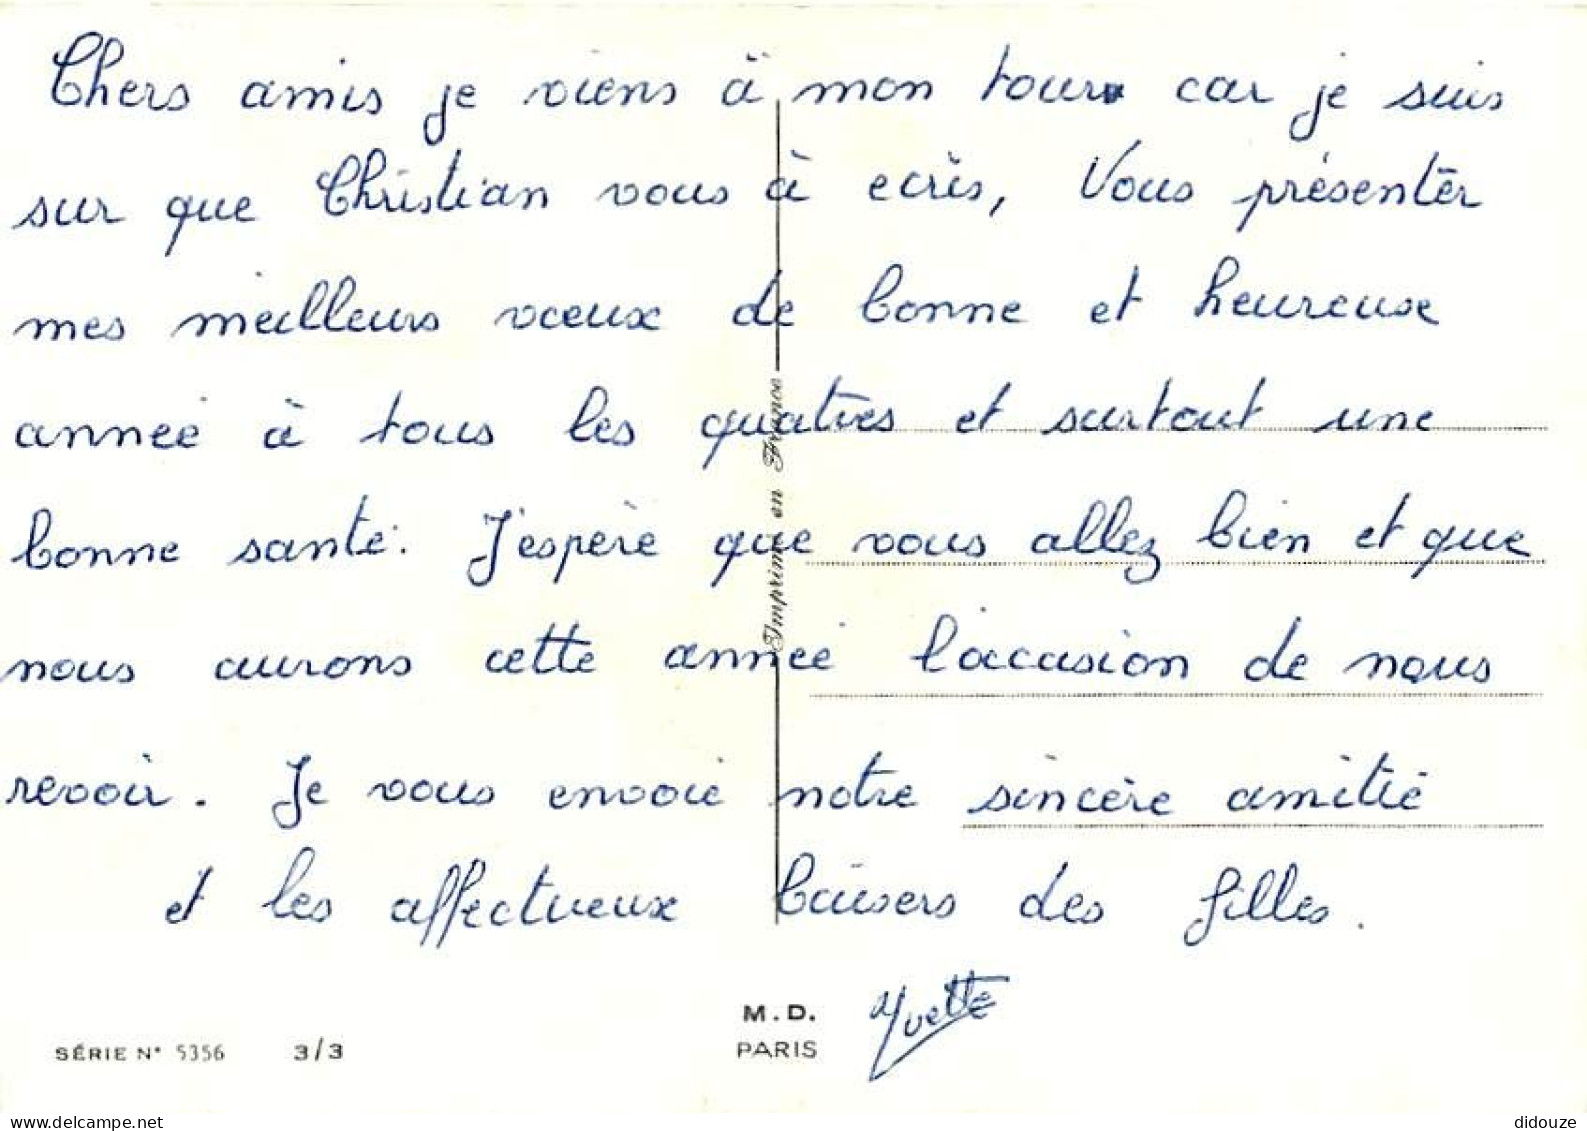 Chers amis je viens à mon tour car je suis
sur que Christian vous à ecris, Vous présenter
mes meilleurs voeux de bonne et heureuse
année à tous les quatres et surtout une
bonne santé. J'espère que vous allez bien et que
nous aurons cette année l'occasion de nous
revoir. Je vous envoie notre sincère amitié
et les affectueux baisers des filles.
Yvette
Imprimé en France
M.D.
PARIS
SÉRIE N° 5356 3/3
delcampe.net
didouze